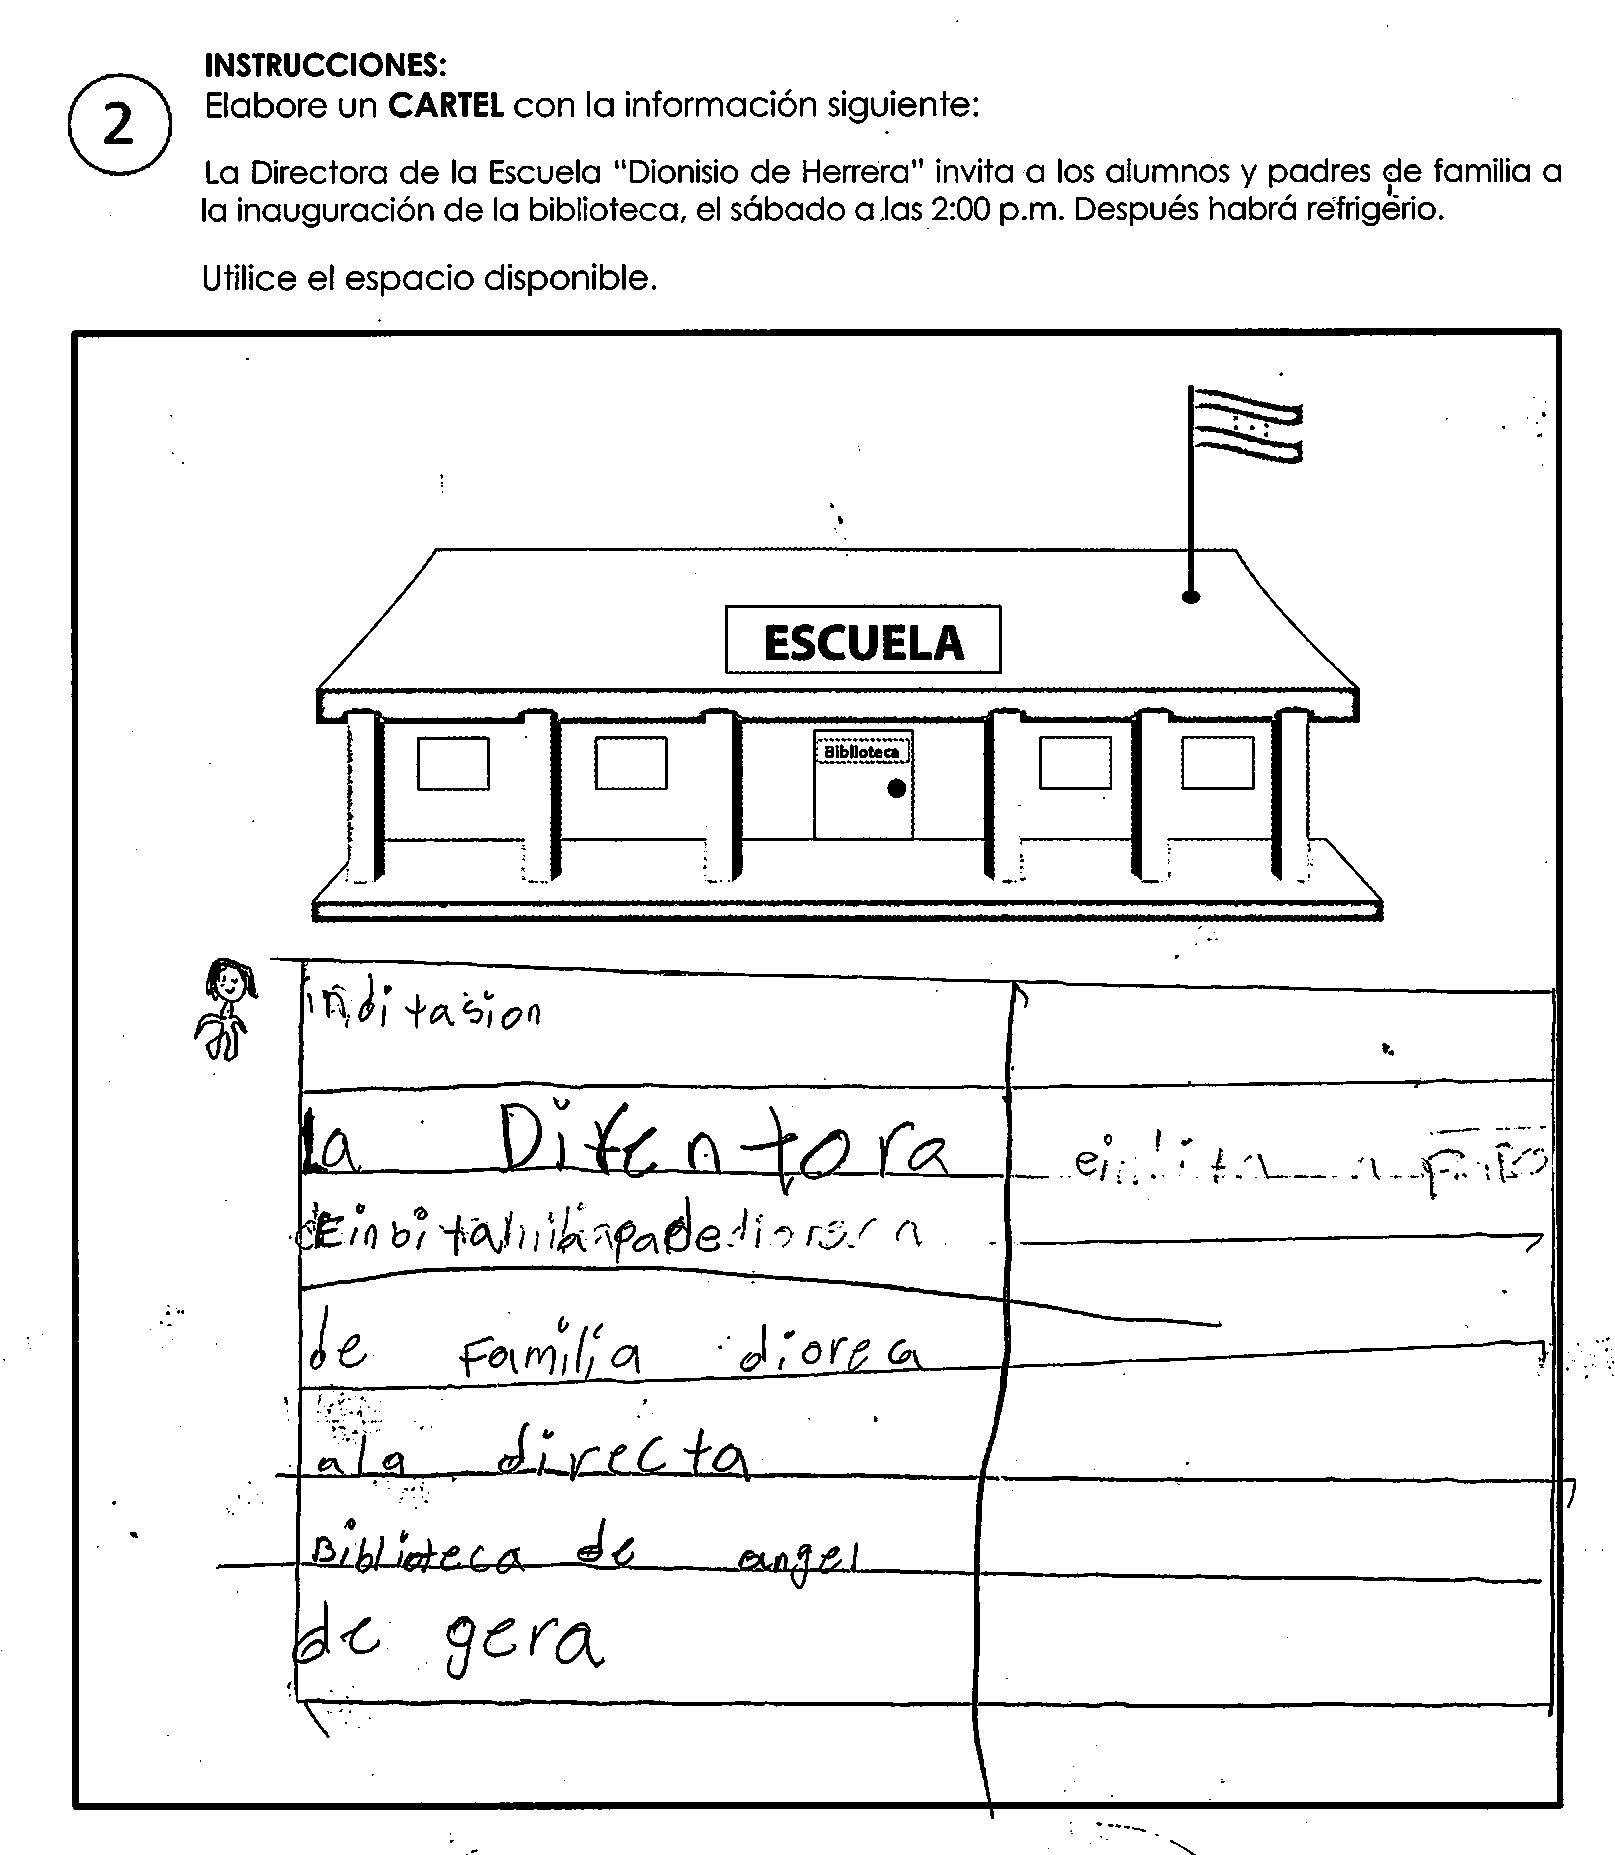 INSTRUCCIONES:
2
Elabore un CARTEL con la información siguiente:
La Directora de la Escuela “Dionisio de Herrera” invita a los alumnos y padres de familia a
la inauguración de la biblioteca, el sábado a las 2:00 p.m. Después habrá refrigerio.
Utilice el espacio disponible.
ESCUELA
Biblioteca
inditasion
la Direntora
de Familia dioreca
ala directa
Biblioteca de angel
de gera